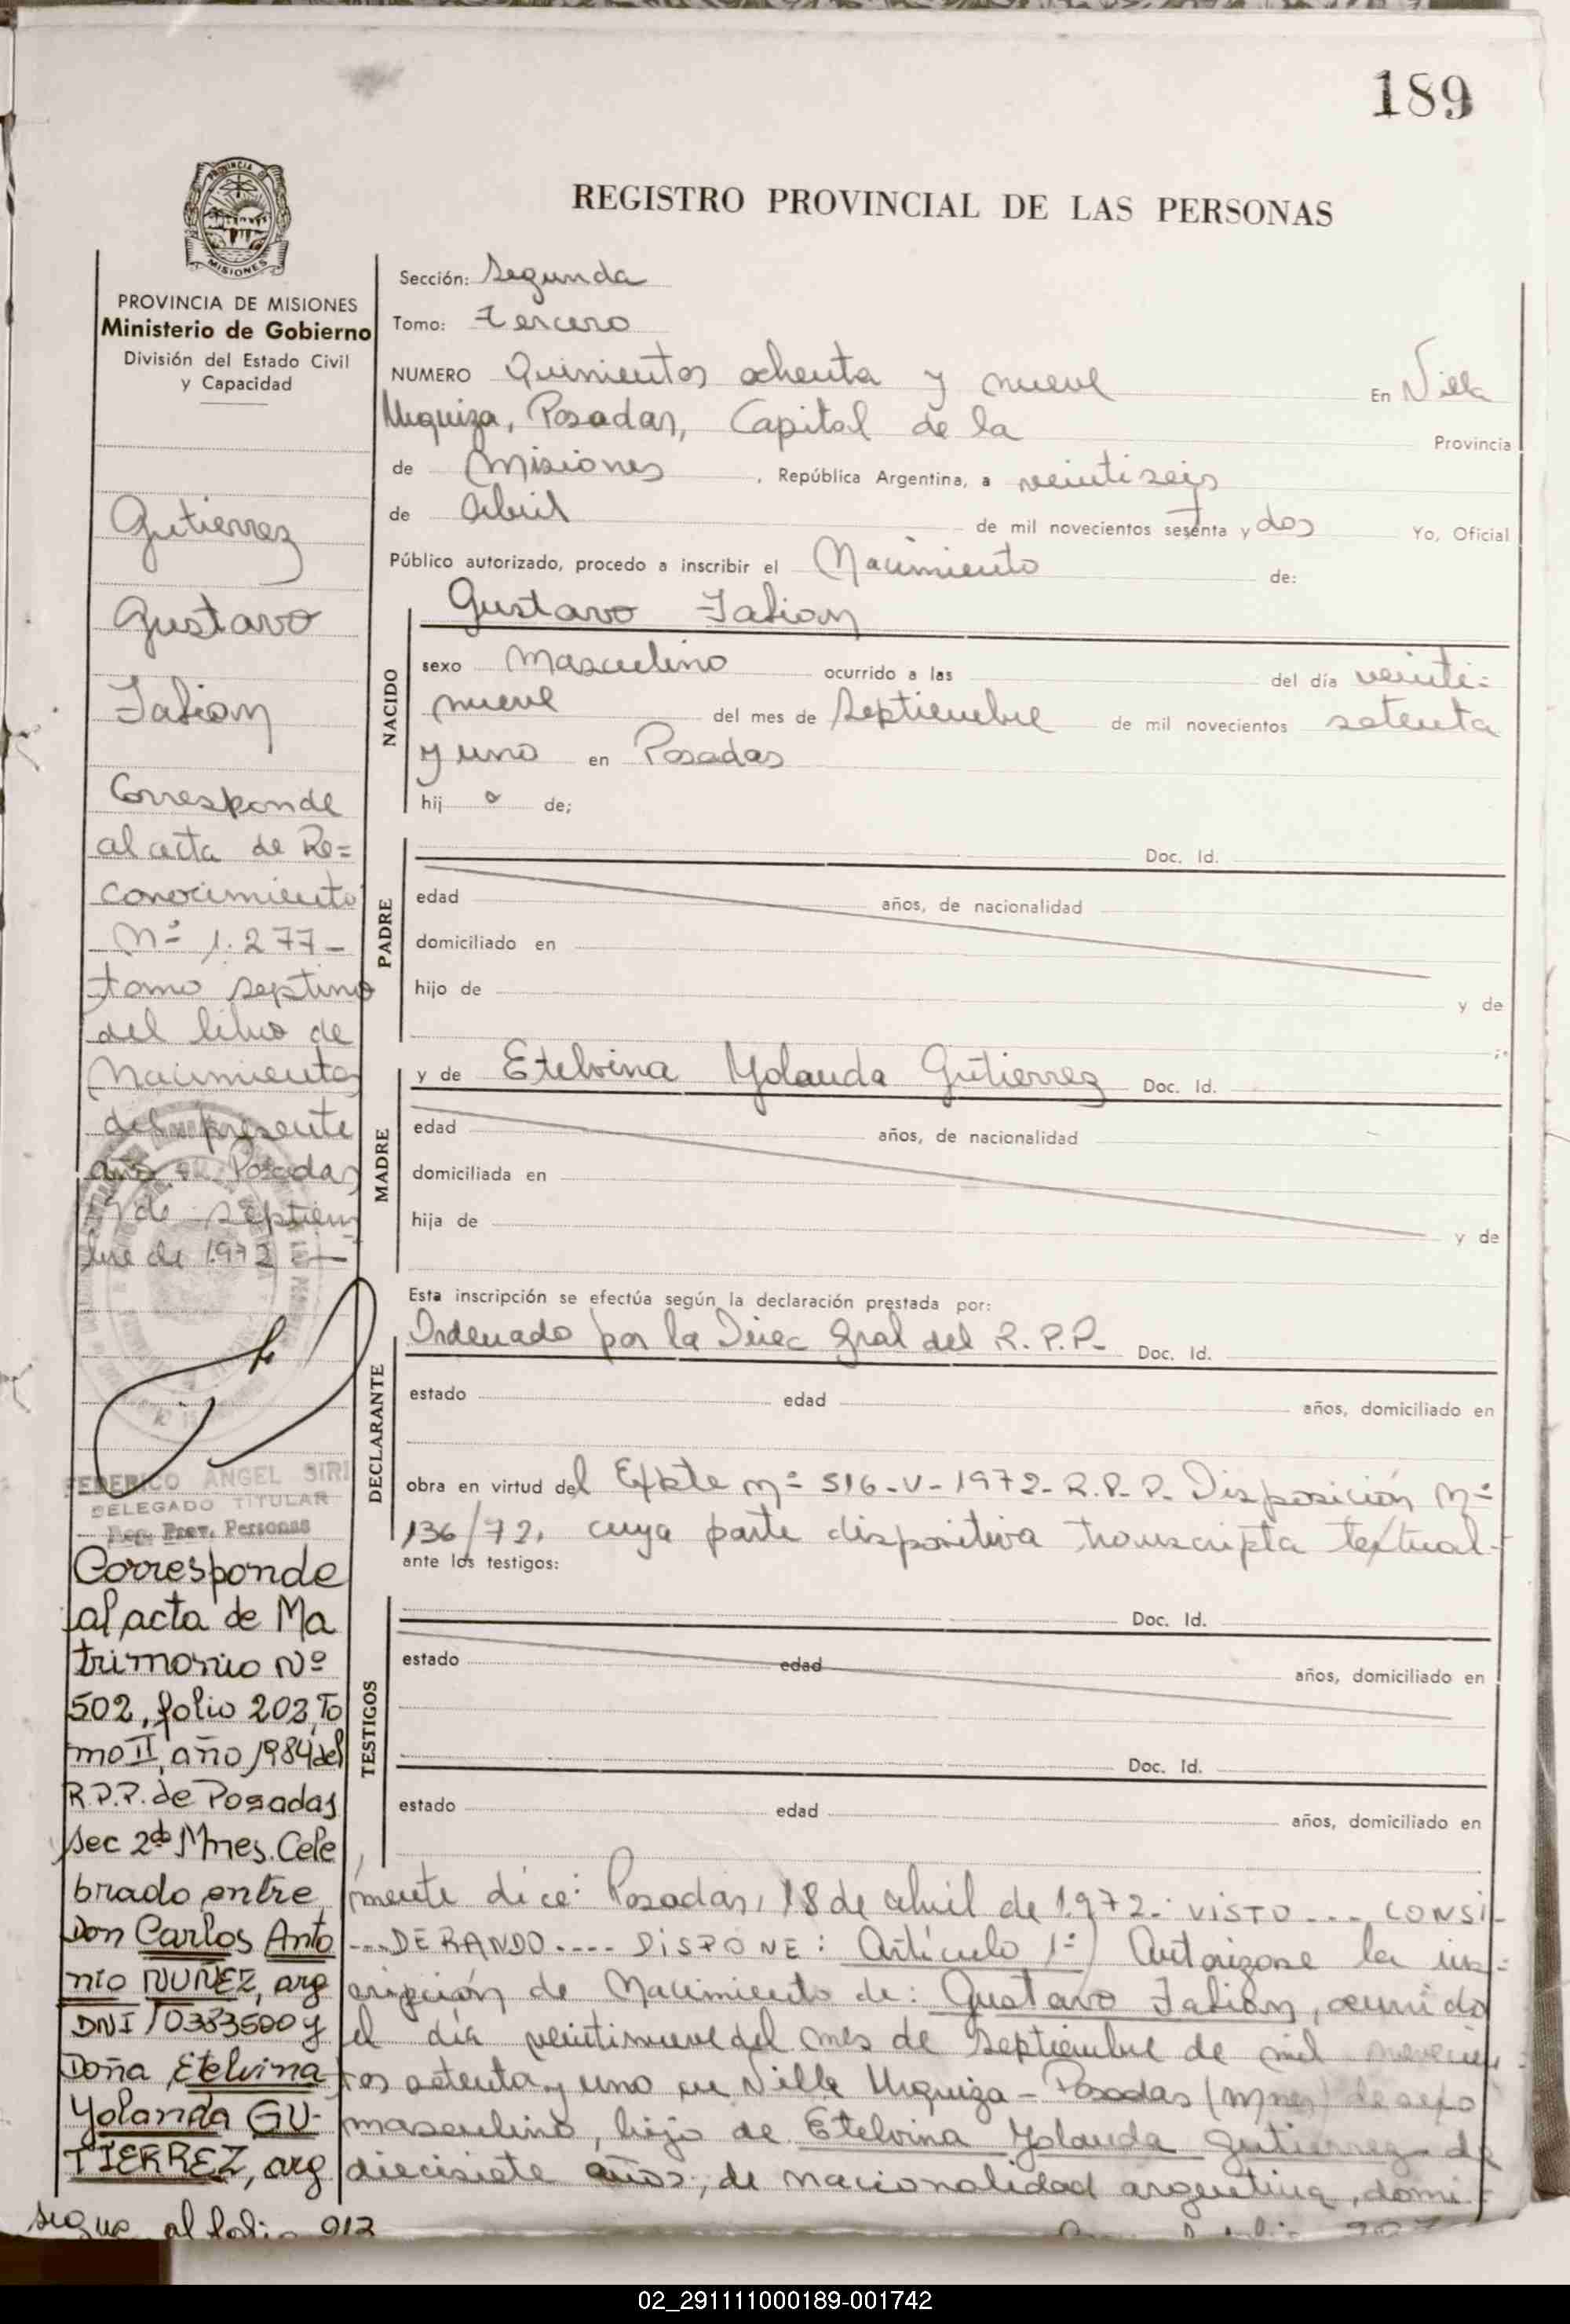 189
REGISTRO PROVINCIAL DE LAS PERSONAS
PROVINCIA DE MISIONES
Ministerio de Gobierno
División del Estado Civil
y Capacidad
Gutierrez
Gustavo
Fabian
Corresponde
al acta de Re=
conocimiento
Nº 1.277-
tomo septimo
del libro de
Nacimientos
del presente
año - Posadas
de septiem
bre de 1972
FEDERICO ANGEL SIRI
DELEGADO TITULAR
Reg. Prov. Personas
Corresponde
al acta de Ma
trimonio Nº
502, folio 202, To
mo II, año 1984 del
R.P.P. de Posadas
Sec 2da Mnes. Cele
brado entre
Don Carlos Anto
nio NUÑEZ, arg
DNI 10383500 y
Doña Etelvina
Yolanda GU-
TIERREZ, arg
sigue al folio 213
Sección: Segunda
Tomo: Tercero
NUMERO Quinientos ochenta y nueve En Villa
Urquiza, Posadas, Capital de la Provincia
de Misiones, República Argentina, a veintiseis
de Abril de mil novecientos setenta y dos Yo, Oficial
Público autorizado, procedo a inscribir el Nacimiento de:
Gustavo Fabian
NACIDO
sexo Masculino ocurrido a las del día veinti=
nueve del mes de Septiembre de mil novecientos setenta
y uno en Posadas
hij o de;
PADRE
Doc. Id.
edad años, de nacionalidad
domiciliado en
hijo de y de
MADRE
y de Etelvina Yolanda Gutierrez Doc. Id.
edad años, de nacionalidad
domiciliada en
hija de y de
Esta inscripción se efectúa según la declaración prestada por:
DECLARANTE
Ordenado por la Direc Gral del R.P.P. Doc. Id.
estado edad años, domiciliado en
obra en virtud del Expte Nº 516-V-1972-R.P.P. Disposición Nº
136/72, cuya parte dispositiva transcripta textual-
ante los testigos:
TESTIGOS
Doc. Id.
estado edad años, domiciliado en
Doc. Id.
estado edad años, domiciliado en
mente dice: Posadas, 18 de abril de 1972.- VISTO ... CONSI-
...DERANDO.... DISPONE: Artículo 1º) Autorizase la ins=
cripción de Nacimiento de: Gustavo Fabian, ocurrido
el día veintinueve del mes de Septiembre de mil novecien
tos setenta y uno en Villa Urquiza - Posadas (Mnes) de sexo
masculino, hijo de Etelvina Yolanda Gutierrez de
diecisiete años, de nacionalidad argentina, domi=
02_291111000189-001742